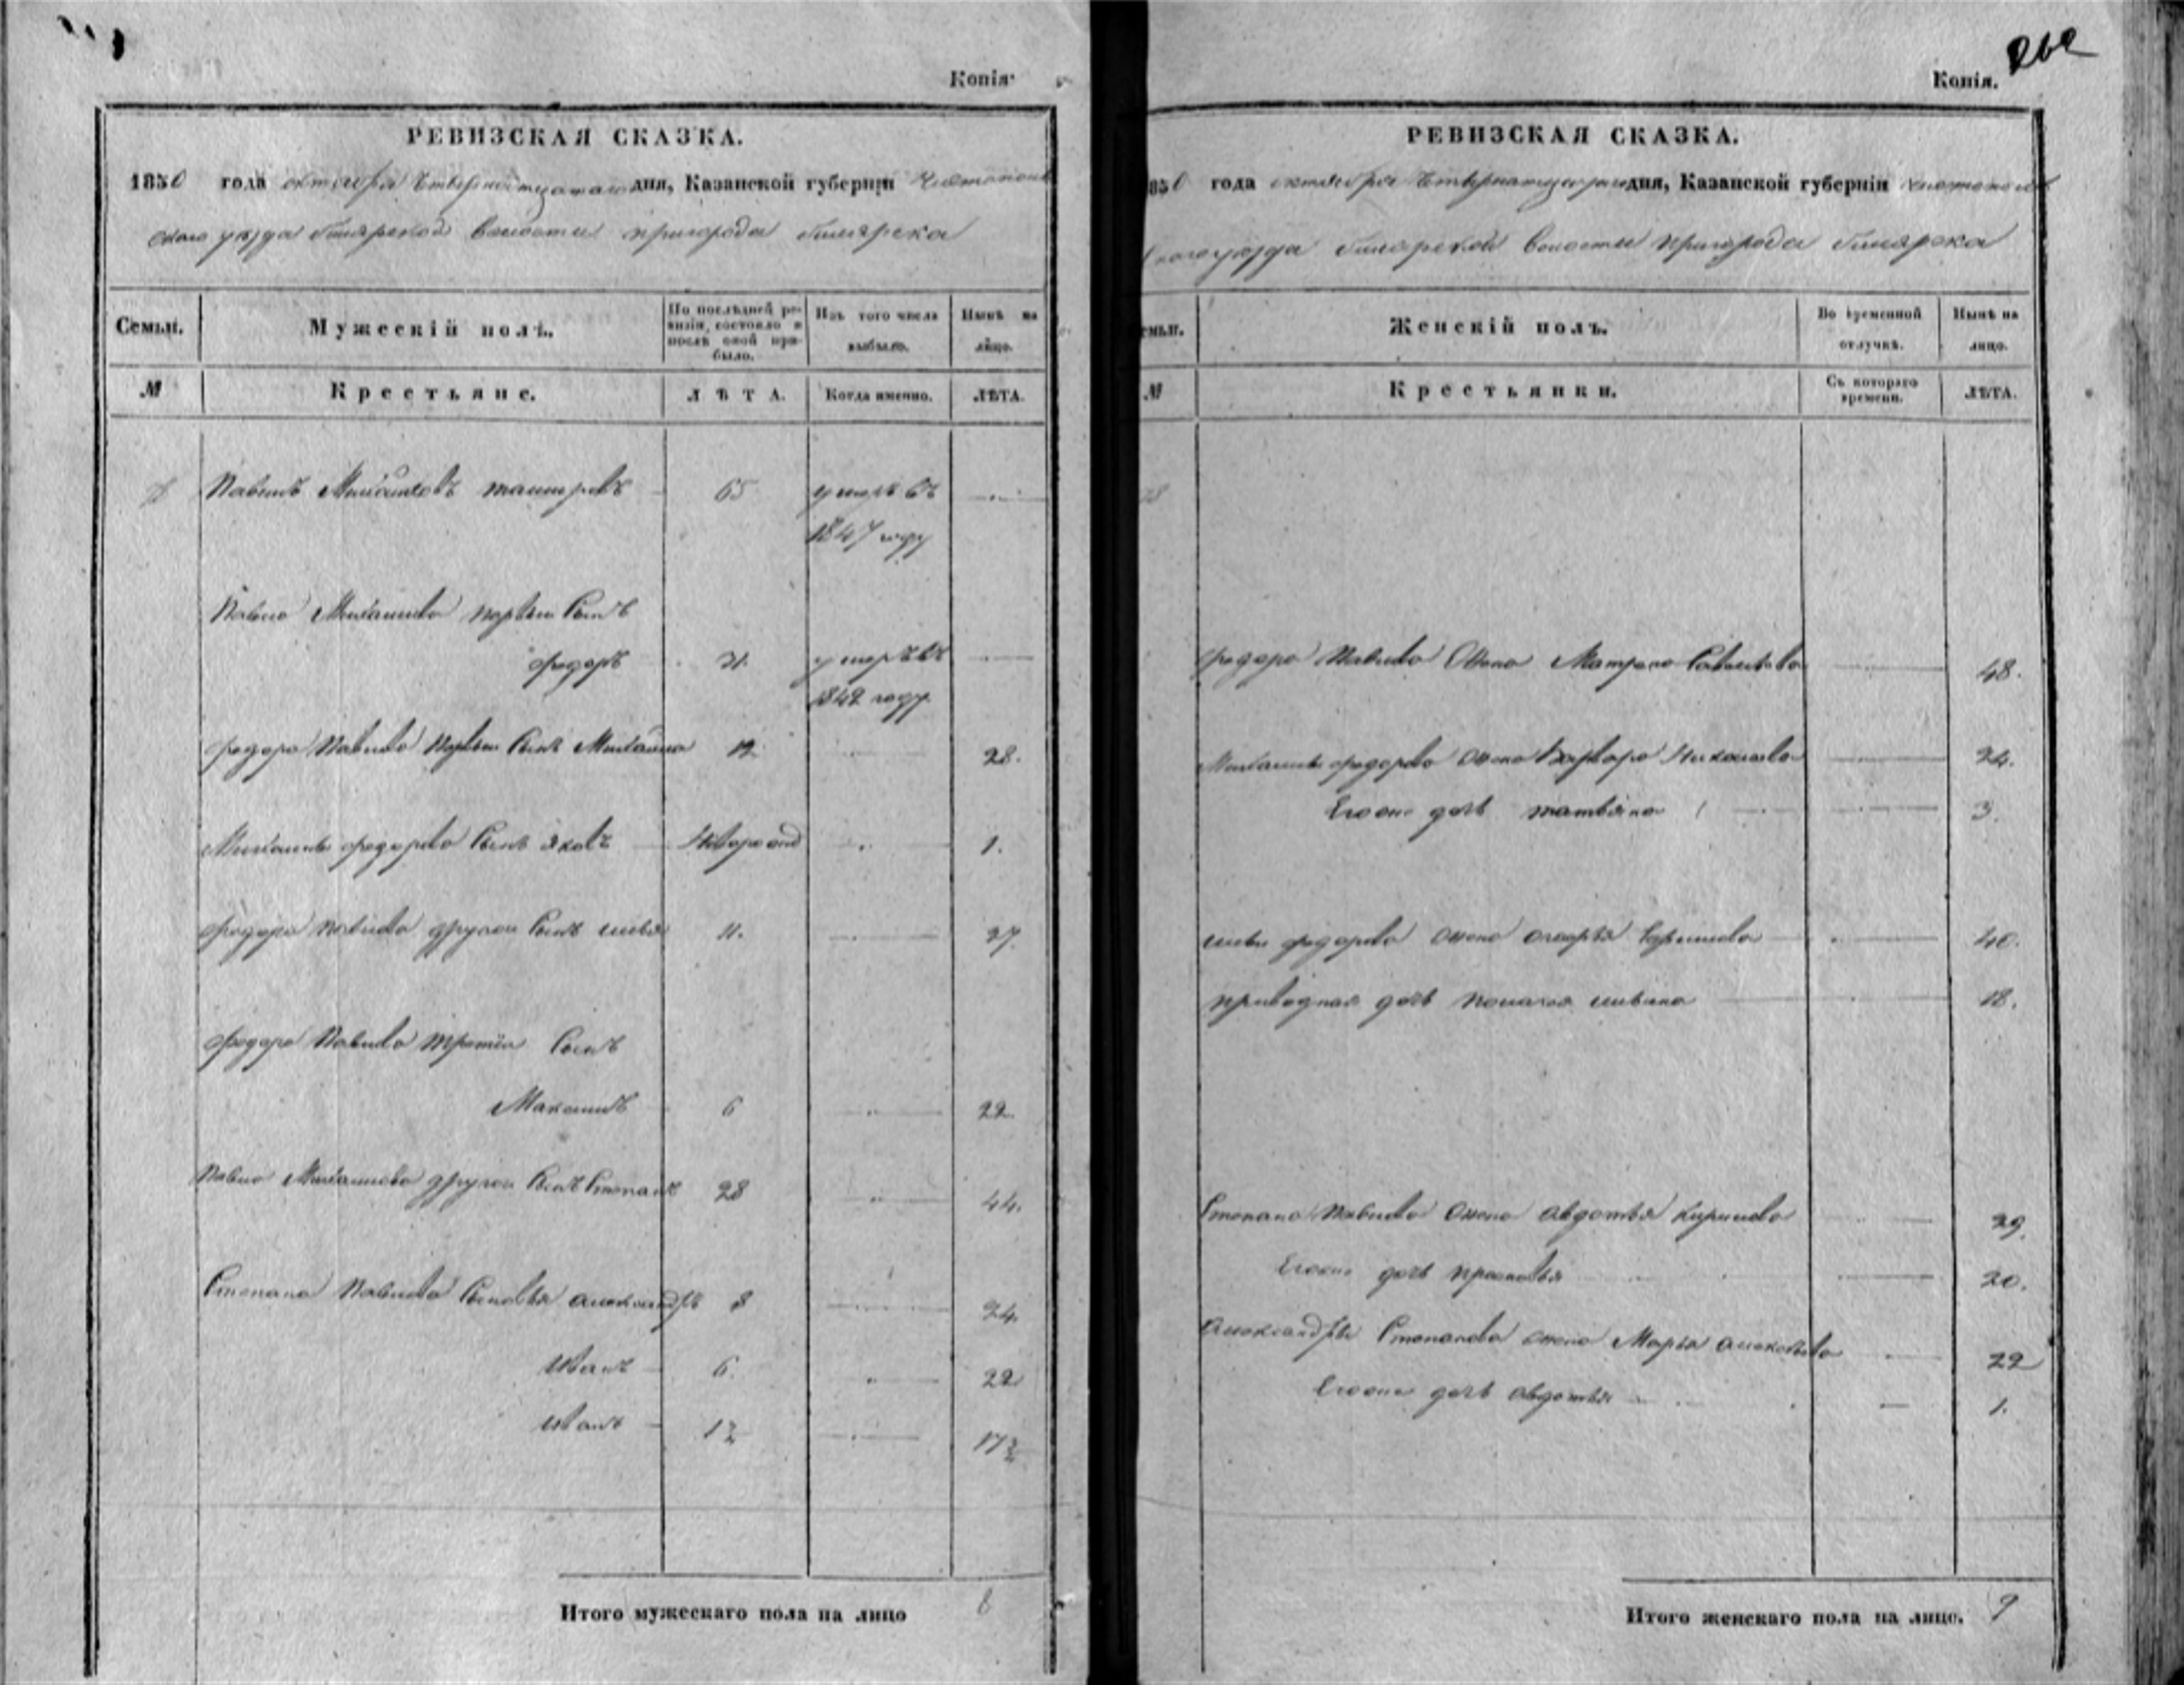 Копія
РЕВИЗСКАЯ СКАЗКА.
1850 года октября Четвернатцатаго дня, Казанской губерніи Чистополь
скаго уезда билярской волости пригорода билярска
Семьи.
Мужескій полъ.
По послѣдней ре-
визіи, состояло и
послѣ оной при-
было.
Изъ того числа
выбыло.
Нынѣ на
лицо.
№
Крестьяне.
ЛѢТА.
Когда именно.
ЛѢТА.
Павелъ Михаиловъ 65 умеръ въ
1847 году
Павла Михаилова первый Сынъ
федоръ 31. умеръ въ
1842 году
федора Павлова первый Сынъ Михаила 12 28.
Михаилы федорова Сынъ яковъ 1.
федора Павлова другой Сынъ илья 11. 27.
федора Павлова третїй Сынъ
Максимъ 6 22
Павла Михаилова другой Сынъ Степанъ 28 44.
Степана Павлова Сыновья александръ 8 24.
иванъ 6. 22
иванъ
Итого мужескаго пола на лицо 8
262
Копія.
РЕВИЗСКАЯ СКАЗКА.
1850 года октября Четвернатцатаго дня, Казанской губерніи Чистополь
скаго уезда билярской волости пригорода билярска
Семьи.
Женскій полъ.
Во временной
отлучкѣ.
Нынѣ на
лицо.
№
Крестьянки.
Съ котораго
времени.
ЛѢТА.
федора Павлова жена Матрена Савельева 48.
Михаилы федорова жена Варвара Николаева 24.
Егоже дочь татьяна 3.
ильи федорова жена 40.
приводная дочь 18.
Степана Павлова жена авдотья кирилова 39.
Егоже дочь прасковья 20.
александры Степанова жена Марья алексеева 22
Егоже дочь авдотья 1.
Итого женскаго пола на лицо. 9